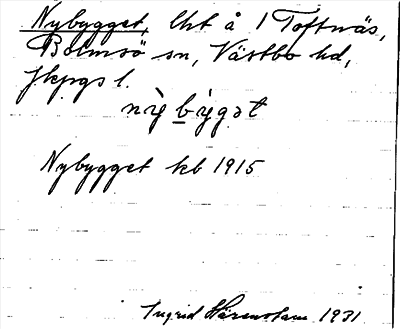 Nybygget, lht å 1 Toftnäs,
Bolmsö sn, Västbo hd,
Jkpgs l.
nỳbỳgət
Nybygget kb 1915
Ingrid Härenstam 1931